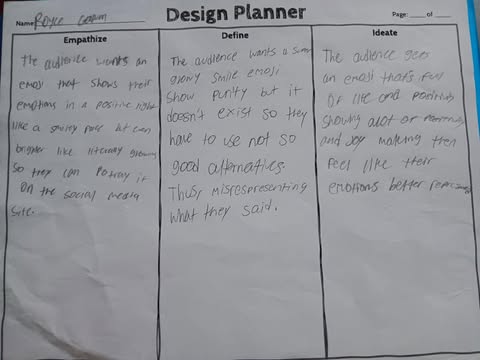 Name: Royce
Design Planner
Page: ____ of ____
Empathize
The audience wants an
emoji that shows their
emotions in a positive light
like a smiley face but can
brighter like literary glowing
so they can portray it
on the social media
site.
Define
The audience wants a
glowy smile emoji
show purity but it
doesn't exist so they
have to use not so
good alternatives.
Thus, misrespresenting
what they said.
Ideate
The audience gets
an emoji that's full
of life and positivity
showing alot of
and Joy making them
feel like their
emotions better